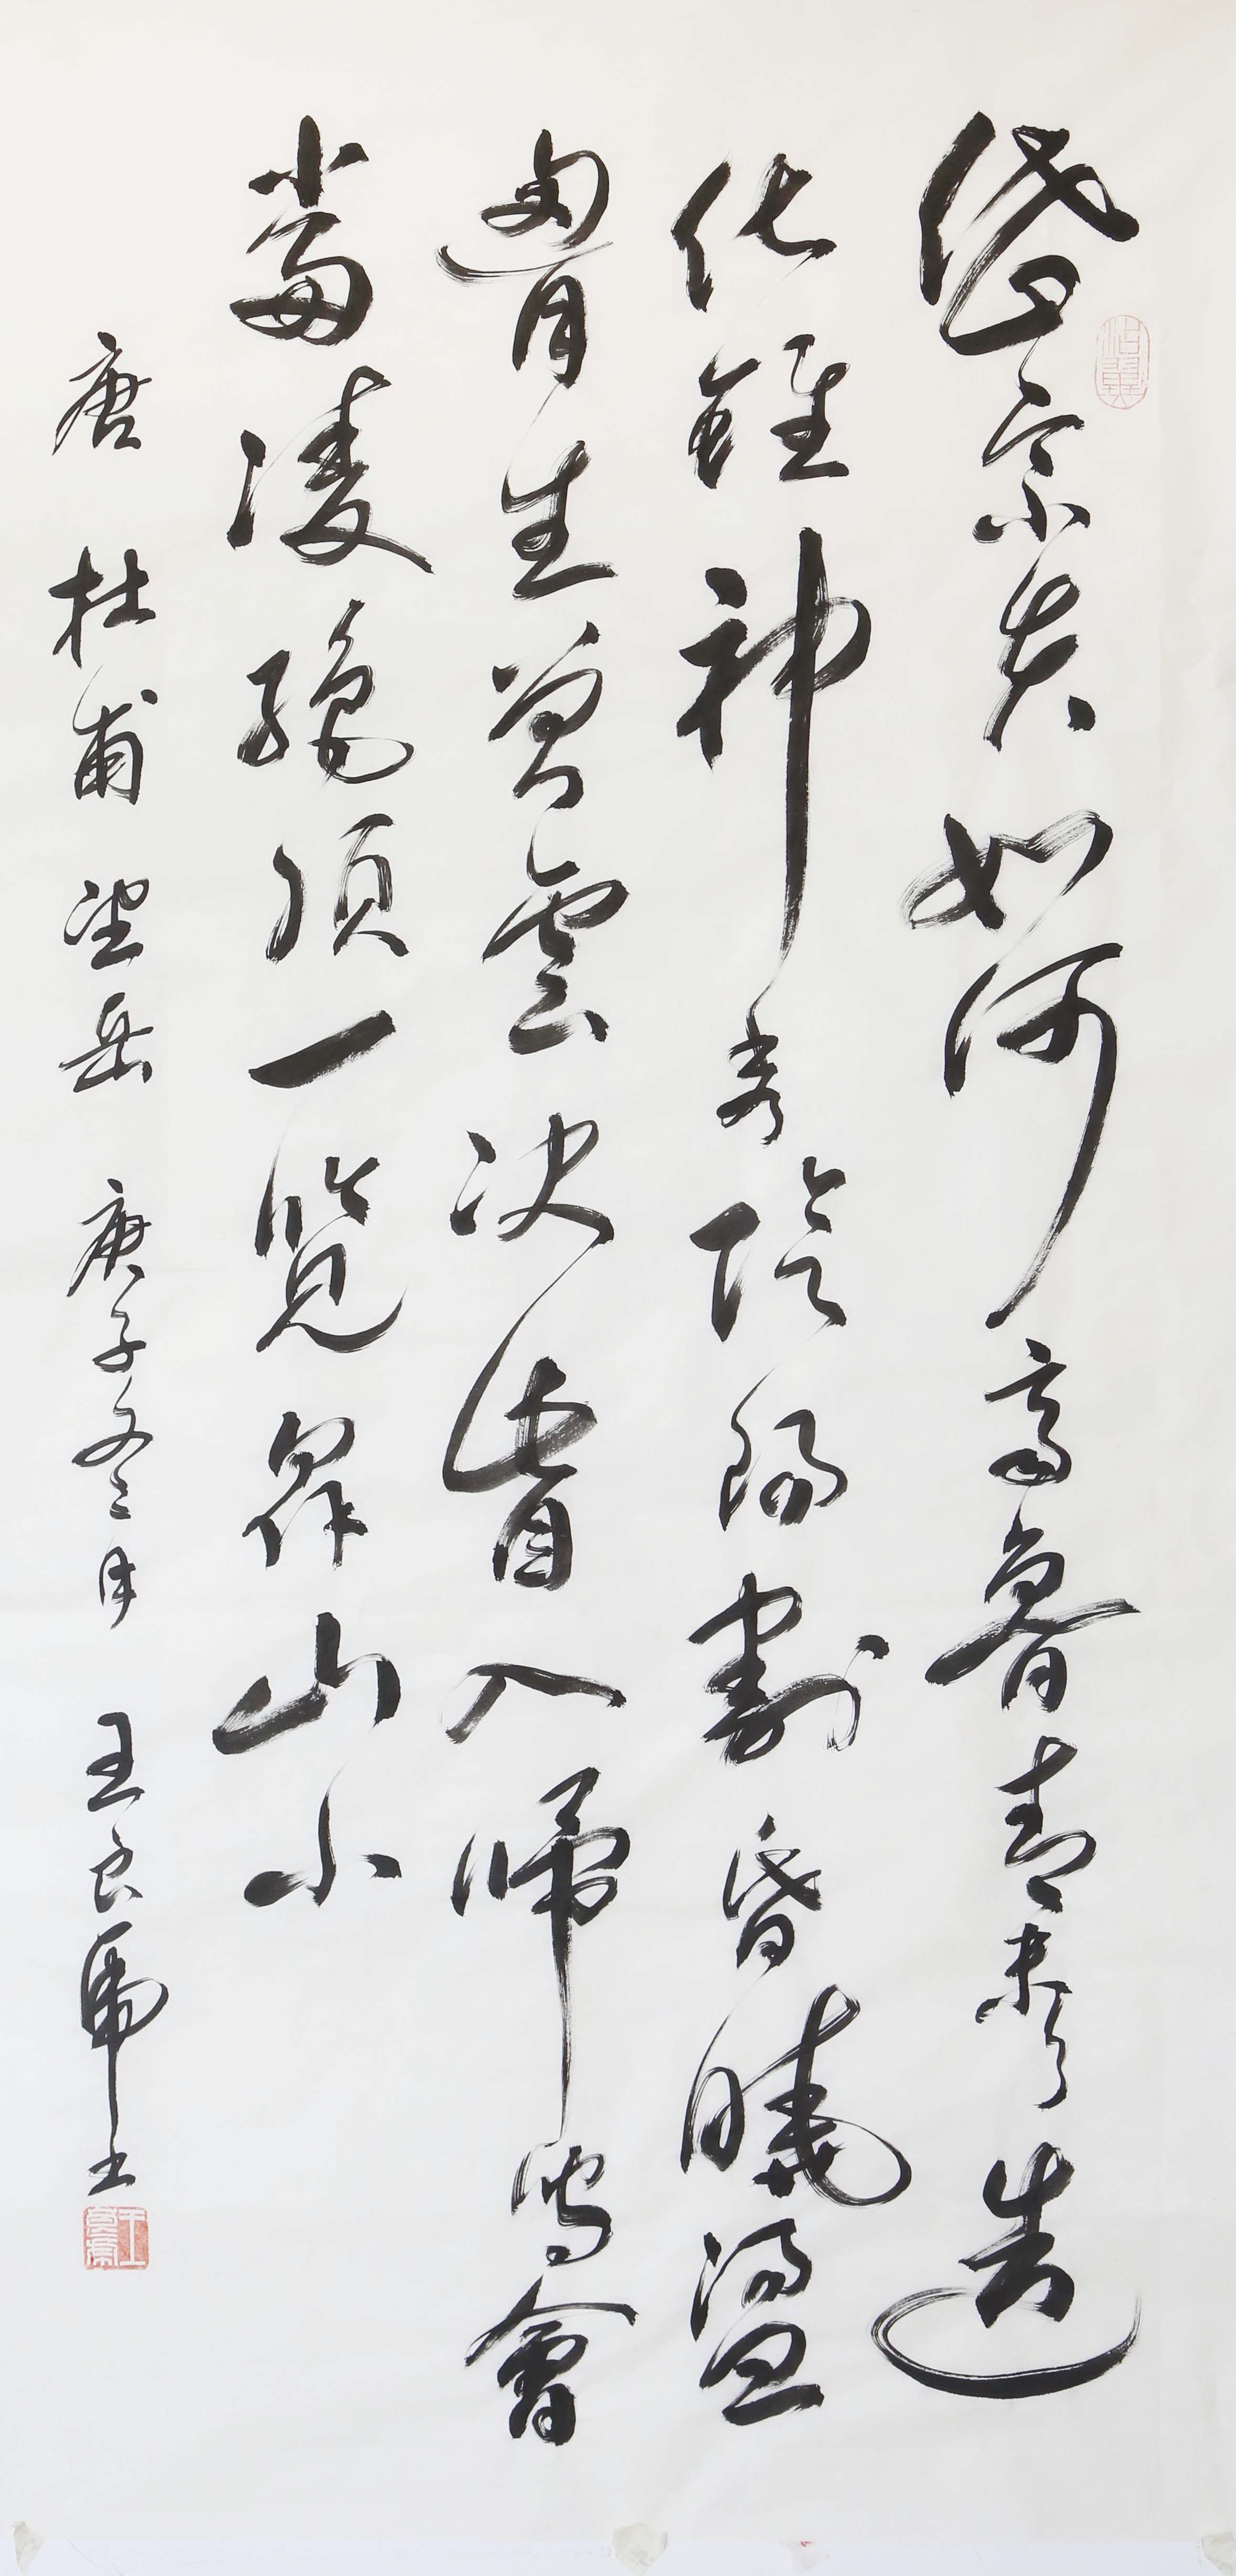 岱宗夫如何齊魯青未了造
化鍾神秀陰陽割昏曉盪
胷生曾雲決眥入歸鳥會
當凌絕頂一覽眾山小
唐 杜甫望岳 庚子冬月 王良虎